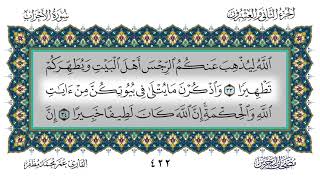 الجزء الثاني والعشرون
سورة الأحزاب
اللَّهُ لِيُذْهِبَ عَنكُمُ الرِّجْسَ أَهْلَ الْبَيْتِ وَيُطَهِّرَكُمْ
تَطْهِيرًا ٣٣ وَاذْكُرْنَ مَا يُتْلَىٰ فِي بُيُوتِكُنَّ مِنْ ءَايَٰتِ
اللَّهِ وَالْحِكْمَةِ إِنَّ اللَّهَ كَانَ لَطِيفًا خَبِيرًا ٣٤ إِنَّ
٤٢٢
القارئ عمر محمد مظفر